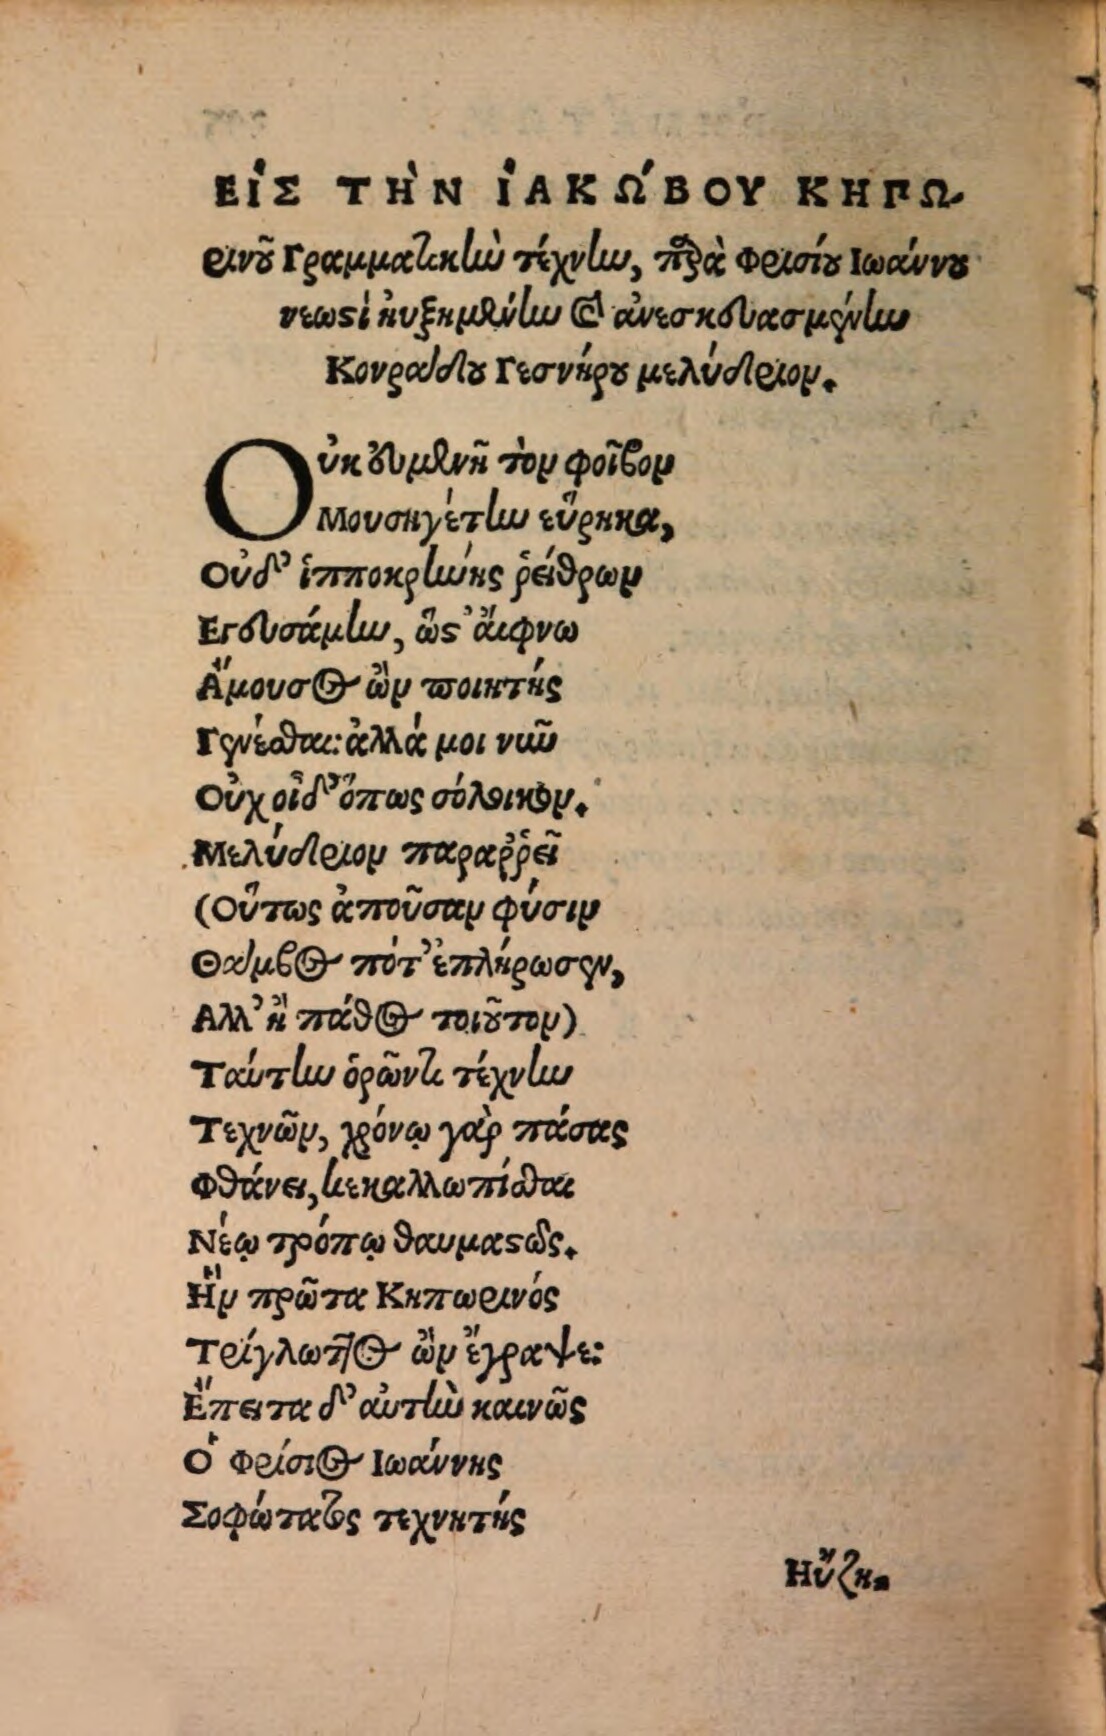 ΕἸΣ ΤῊΝ ἸΑΚΏΒΟΥ ΚΗΠΩ-
ρινοῦ Γραμματικὴν τέχνην, παρὰ Φρισίου Ιωάννου
νεωστὶ ηὐξημένην καὶ ἀνεσκευασμένην
Κονράδου Γεσνήρου μελύδριον.
Οὐκ εὐμενῆ τὸν φοῖβον
Μουσηγέτην εὕρηκα,
Οὐδ' ἱπποκρήνης ῥείθρων
Εγευσάμην, ὥς' ἄιφνω
Ἄμουσος ὢν ποιητής
Γενέσθαι: ἀλλά μοι νῦν
Οὐχ οἶδ' ὅπως σόλοικον.
Μελύδριον παραῤῥεῖ
(Οὕτως ἀποῦσαν φύσιν
Θάμβος πότ' ἐπλήρωσεν,
Αλλ' ἢ πάθος τοιοῦτον)
Ταύτην ὁρῶντι τέχνην
Τεχνῶν, χρόνῳ γὰρ πάσας
Φθάνει, κεκαλλωπίσθαι
Νέῳ τρόπῳ θαυμαστῶς.
Ἣν πρῶτα Κηπωρινός
Τρίγλωττος ὢν ἔγραψε:
Ἔπειτα δ' αὐτὴν καινῶς
Ὁ Φρίσιος Ιωάννης
Σοφώτατος τεχνητής
Ηὔξη-